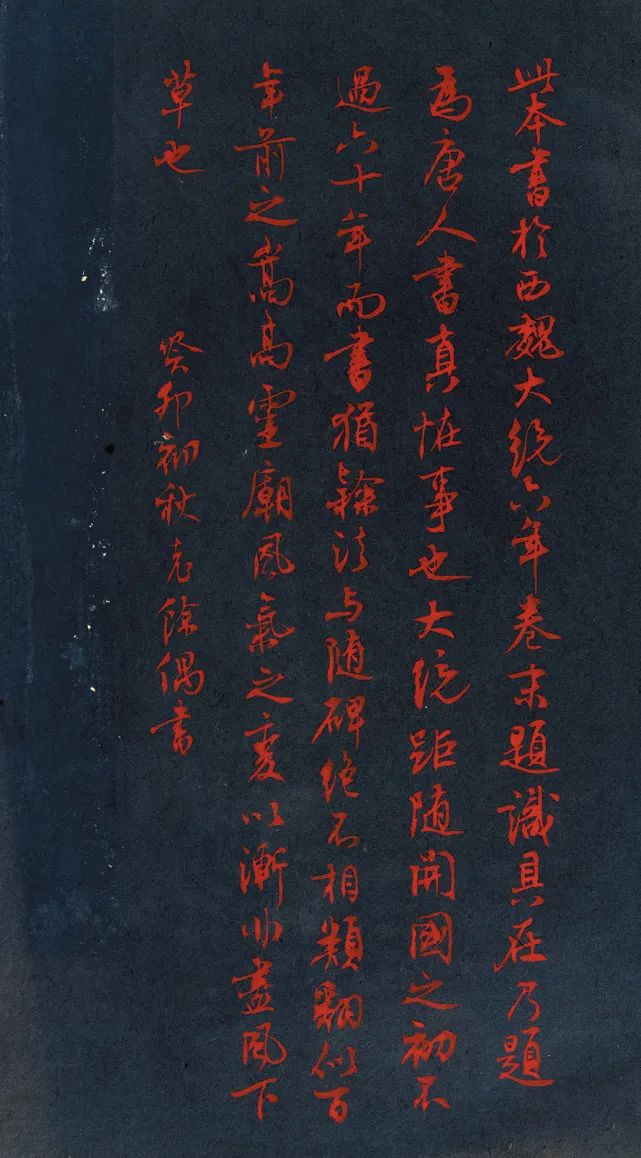 此本書於西魏大統六年卷末題識具在乃題
為唐人書真怪事也大統距隨開國之初不
過六十年而書猶隸法与随碑絕不相類翻似百
年前之嵩高靈廟風氣之變以漸非盡風下
草也
癸卯初秋老馀偶書